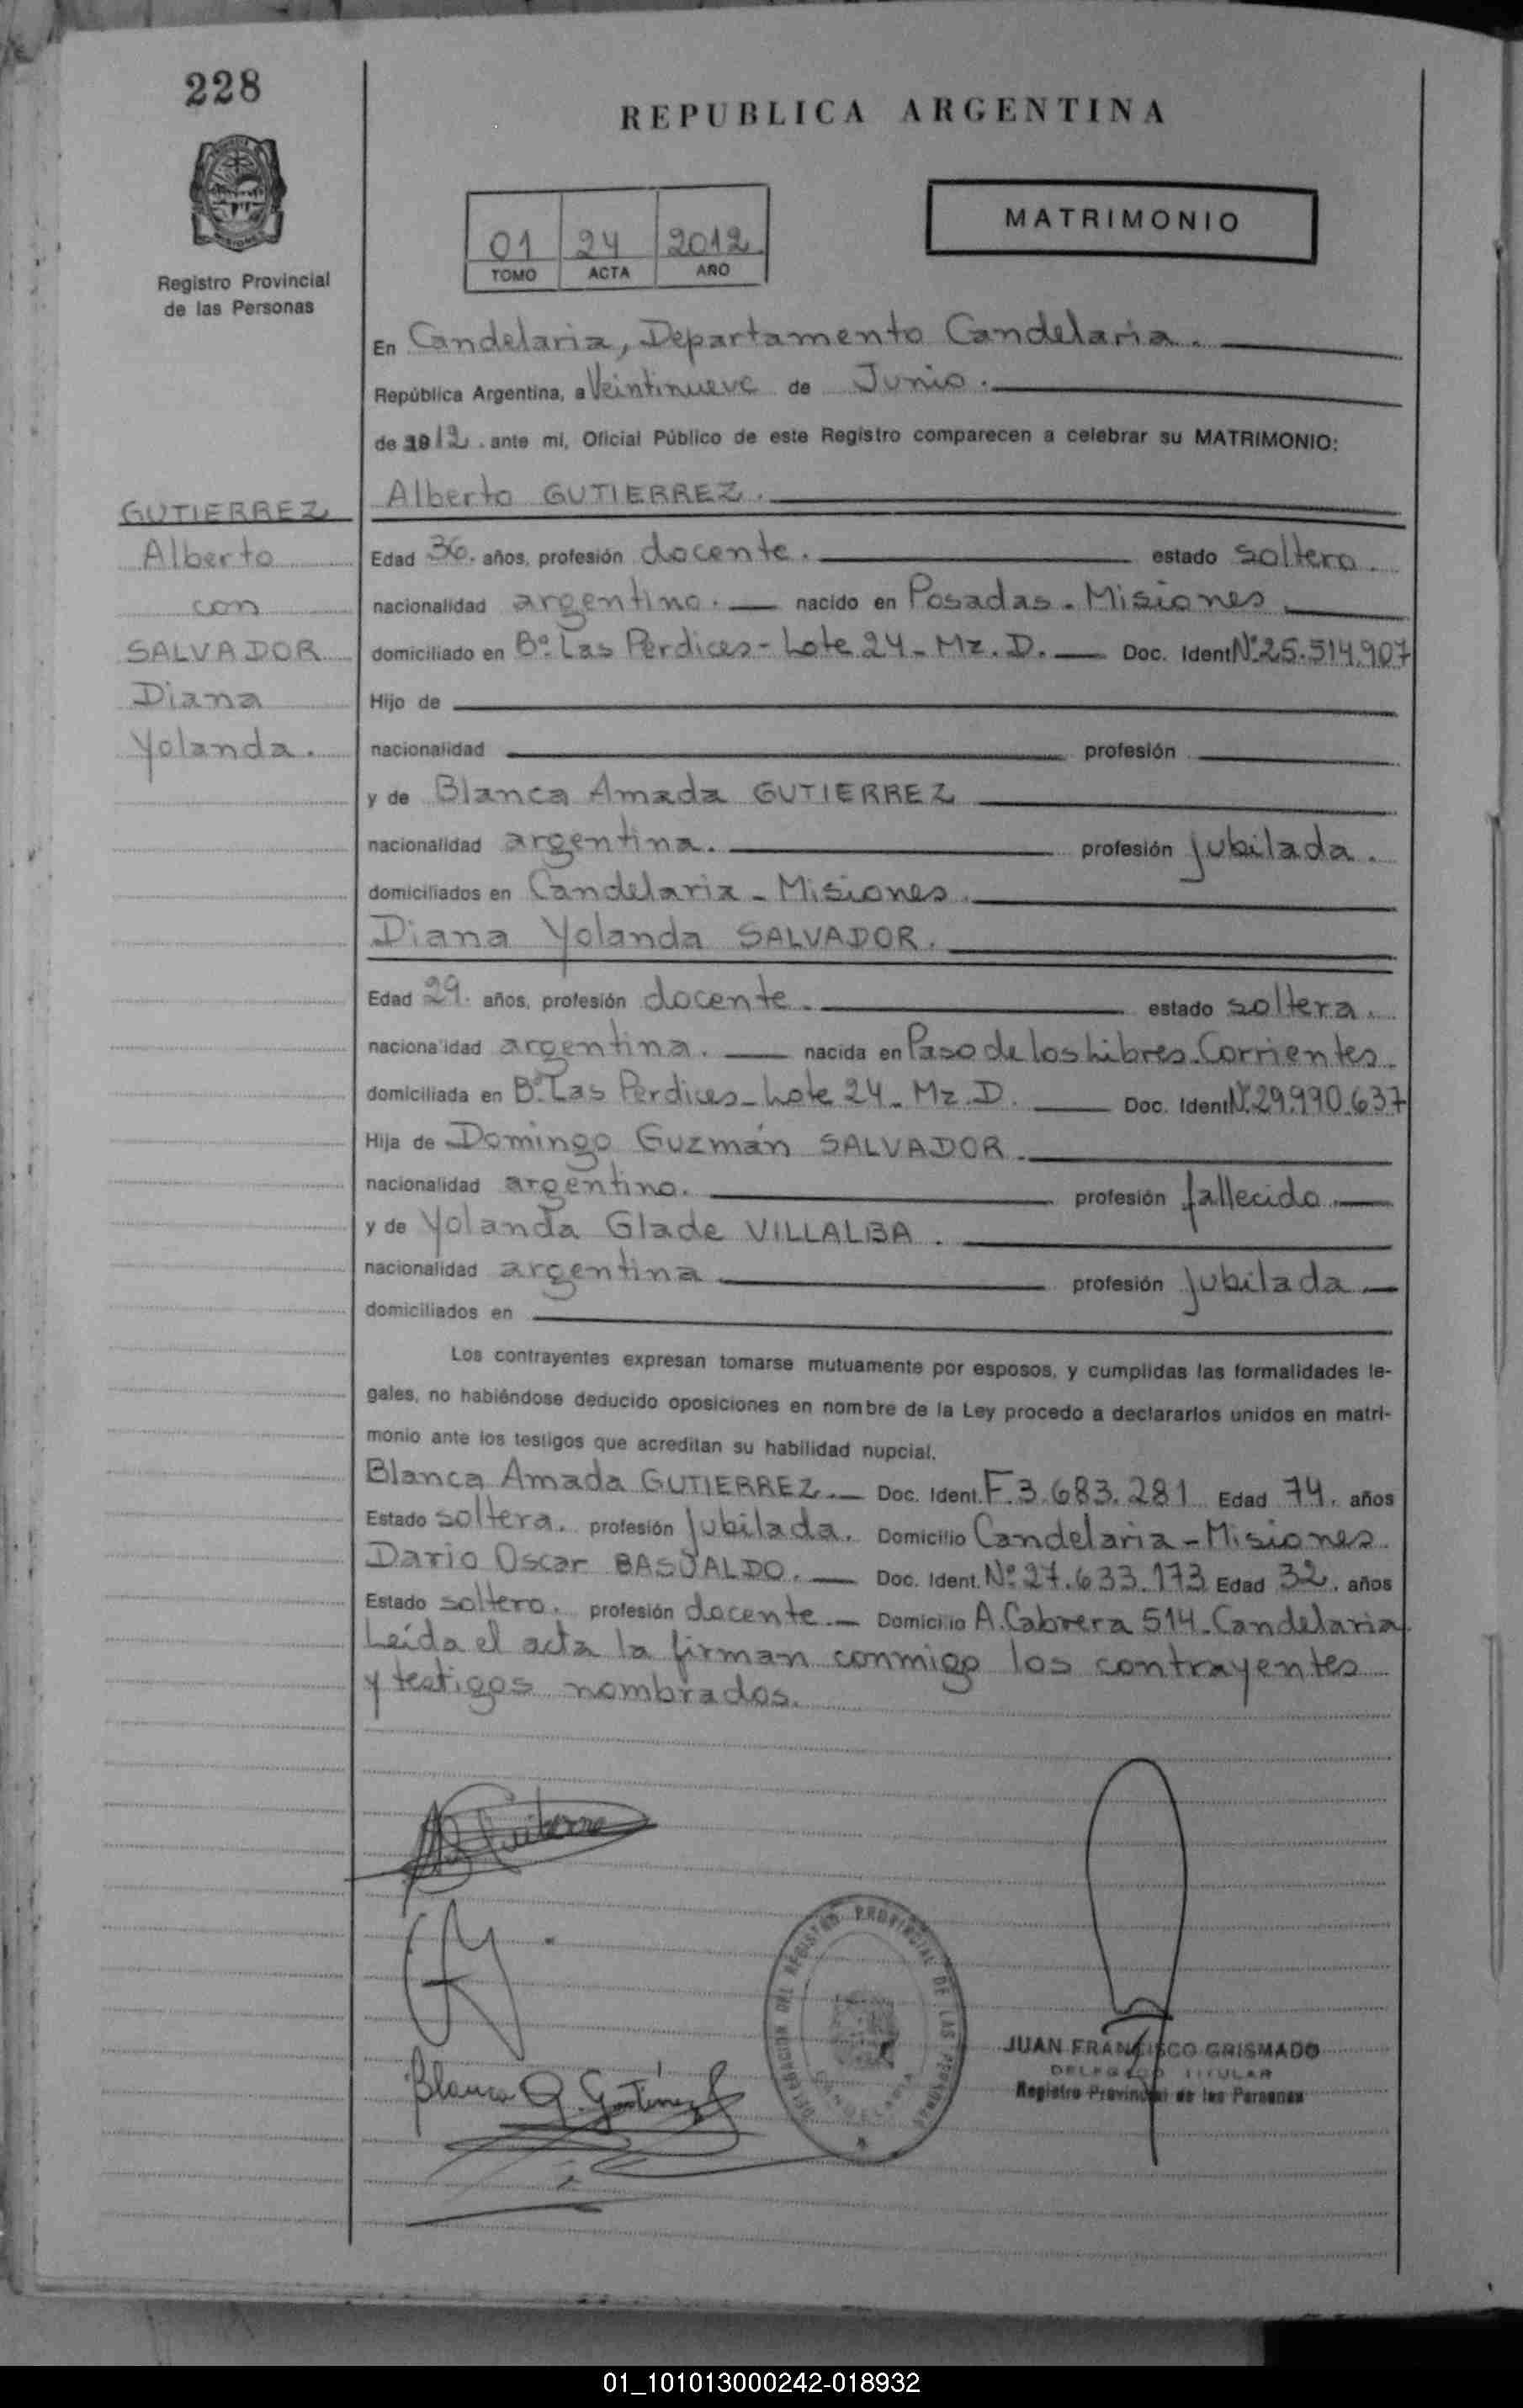 228
REPUBLICA ARGENTINA
MATRIMONIO
01 24 2012
TOMO ACTA AÑO
Registro Provincial
de las Personas
En Candelaria, Departamento Candelaria.
República Argentina, a Veintinueve de Junio.
de 2012. ante mi, Oficial Público de este Registro comparecen a celebrar su MATRIMONIO:
GUTIERREZ
Alberto
con
SALVADOR
Diana
Yolanda.
Alberto GUTIERREZ.
Edad 36. años, profesión docente. estado soltero.
nacionalidad argentino. nacido en Posadas - Misiones
domiciliado en Bº Las Perdices - Lote 24 - Mz. D. Doc. Ident Nº 25.514.907
Hijo de
nacionalidad profesión
y de Blanca Amada GUTIERREZ
nacionalidad argentina. profesión jubilada.
domiciliados en Candelaria - Misiones.
Diana Yolanda SALVADOR.
Edad 29. años, profesión docente. estado soltera.
nacionalidad argentina. nacida en Paso de los Libres - Corrientes.
domiciliada en Bº Las Perdices - Lote 24 - Mz. D. Doc. Ident Nº 29.990.637
Hija de Domingo Guzmán SALVADOR.
nacionalidad argentino. profesión fallecido.
y de Yolanda Glade VILLALBA.
nacionalidad argentina profesión jubilada
domiciliados en
Los contrayentes expresan tomarse mutuamente por esposos, y cumplidas las formalidades le-
gales, no habiéndose deducido oposiciones en nombre de la Ley procedo a declararlos unidos en matri-
monio ante los testigos que acreditan su habilidad nupcial.
Blanca Amada GUTIERREZ. Doc. Ident. F. 3.683.281 Edad 74. años
Estado soltera. profesión jubilada. Domicilio Candelaria - Misiones.
Dario Oscar BASUALDO. Doc. Ident. Nº 27.633.173 Edad 32. años
Estado soltero. profesión docente. Domicilio A. Cabrera 514 - Candelaria.
Leída el acta la firman conmigo los contrayentes
y testigos nombrados.
Blanca A. Gutierrez
DELEGACION DEL REGISTRO PROVINCIAL DE LAS PERSONAS
CANDELARIA
JUAN FRANCISCO GRISMADO
DELEGADO TITULAR
Registro Provincial de las Personas
01_101013000242-018932